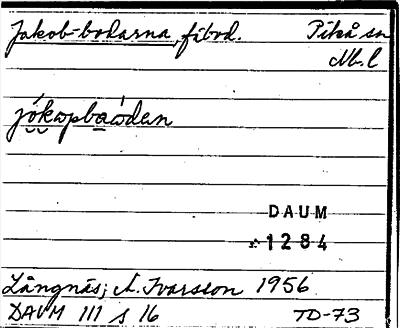 Jakob-bodarna, fäbod. Piteå sn
Nb. l
jókopbaòdan
DAUM
1284
Långnäs; A. Ivarsson 1956
DAUM 111 s 16 TD-73